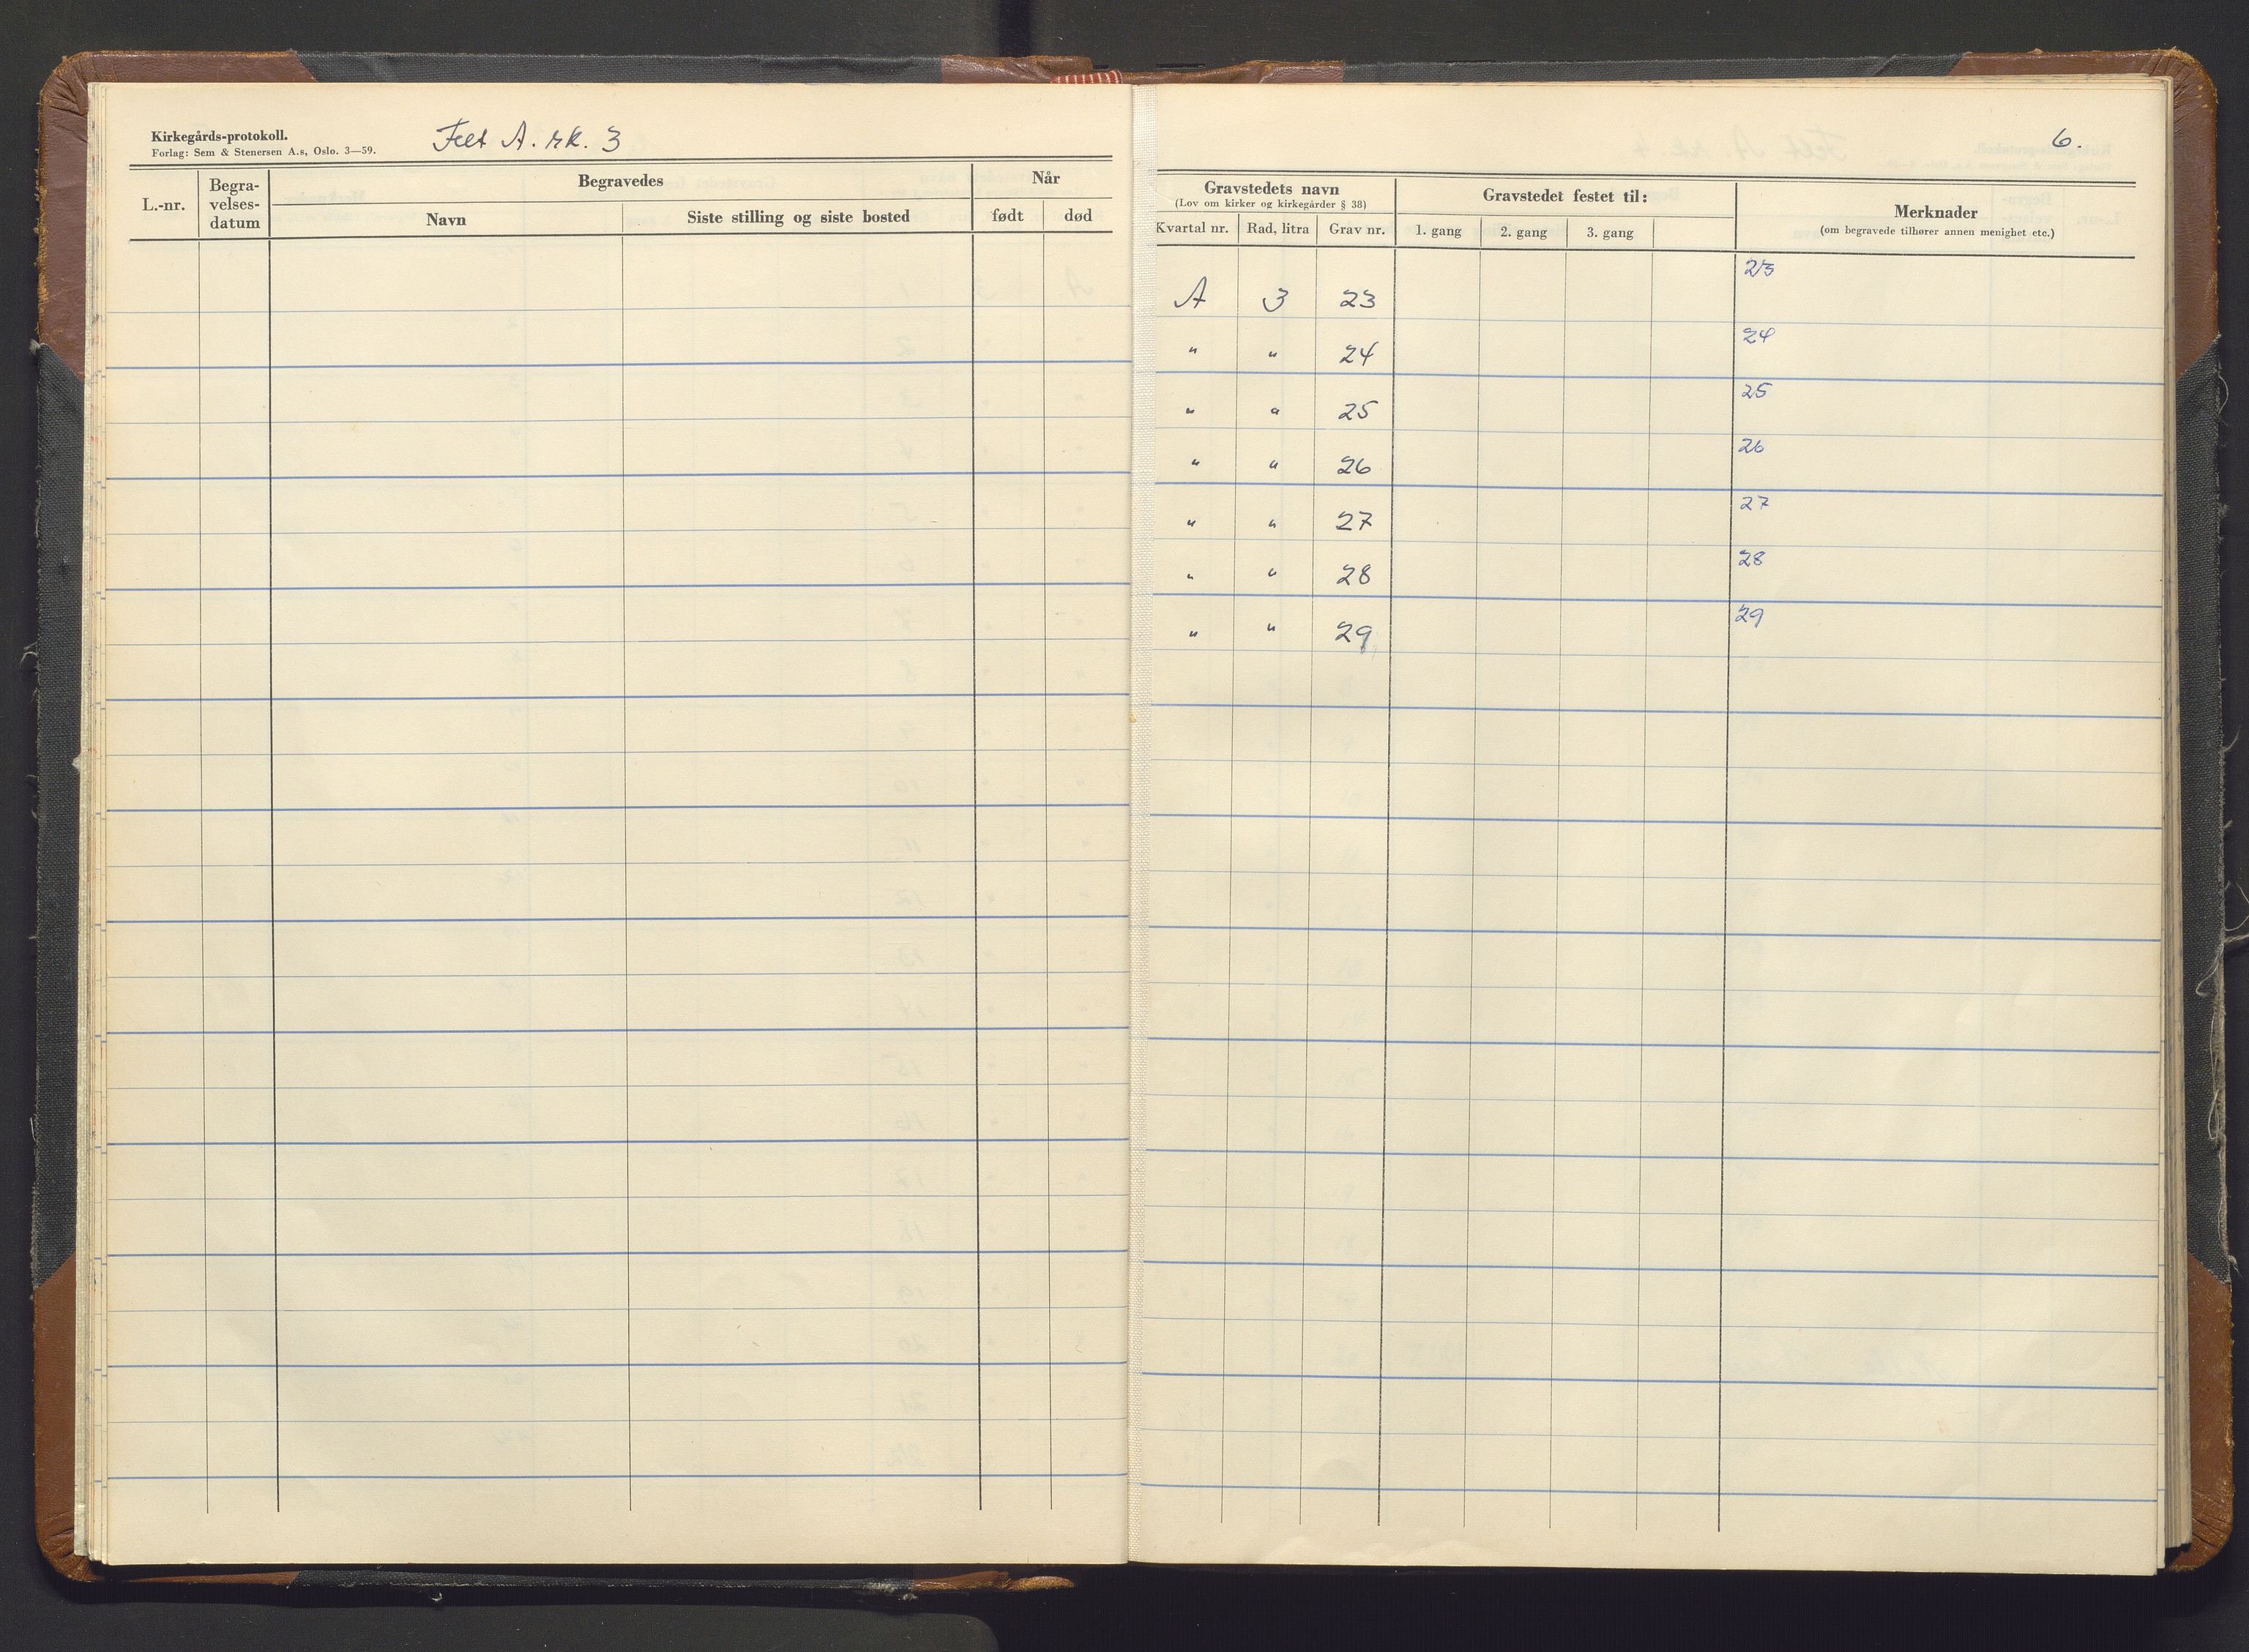 Kirkegårds-protokoll.
Forlag: Sem & Stenersen A.s, Oslo. 3—59.
Felt A. rk. 3
L.-nr.
Begra-
velses-
datum
Begravedes
Navn
Siste stilling og siste bosted
Når
født
død
6.
Gravstedets navn
(Lov om kirker og kirkegårder § 38)
Kvartal nr.
Rad, litra
Grav nr.
Gravstedet festet til:
1. gang
2. gang
3. gang
Merknader
(om begravede tilhører annen menighet etc.)
A 3 23 23
" " 24 24
" " 25 25
" " 26 26
" " 27 27
" " 28 28
" " 29 29